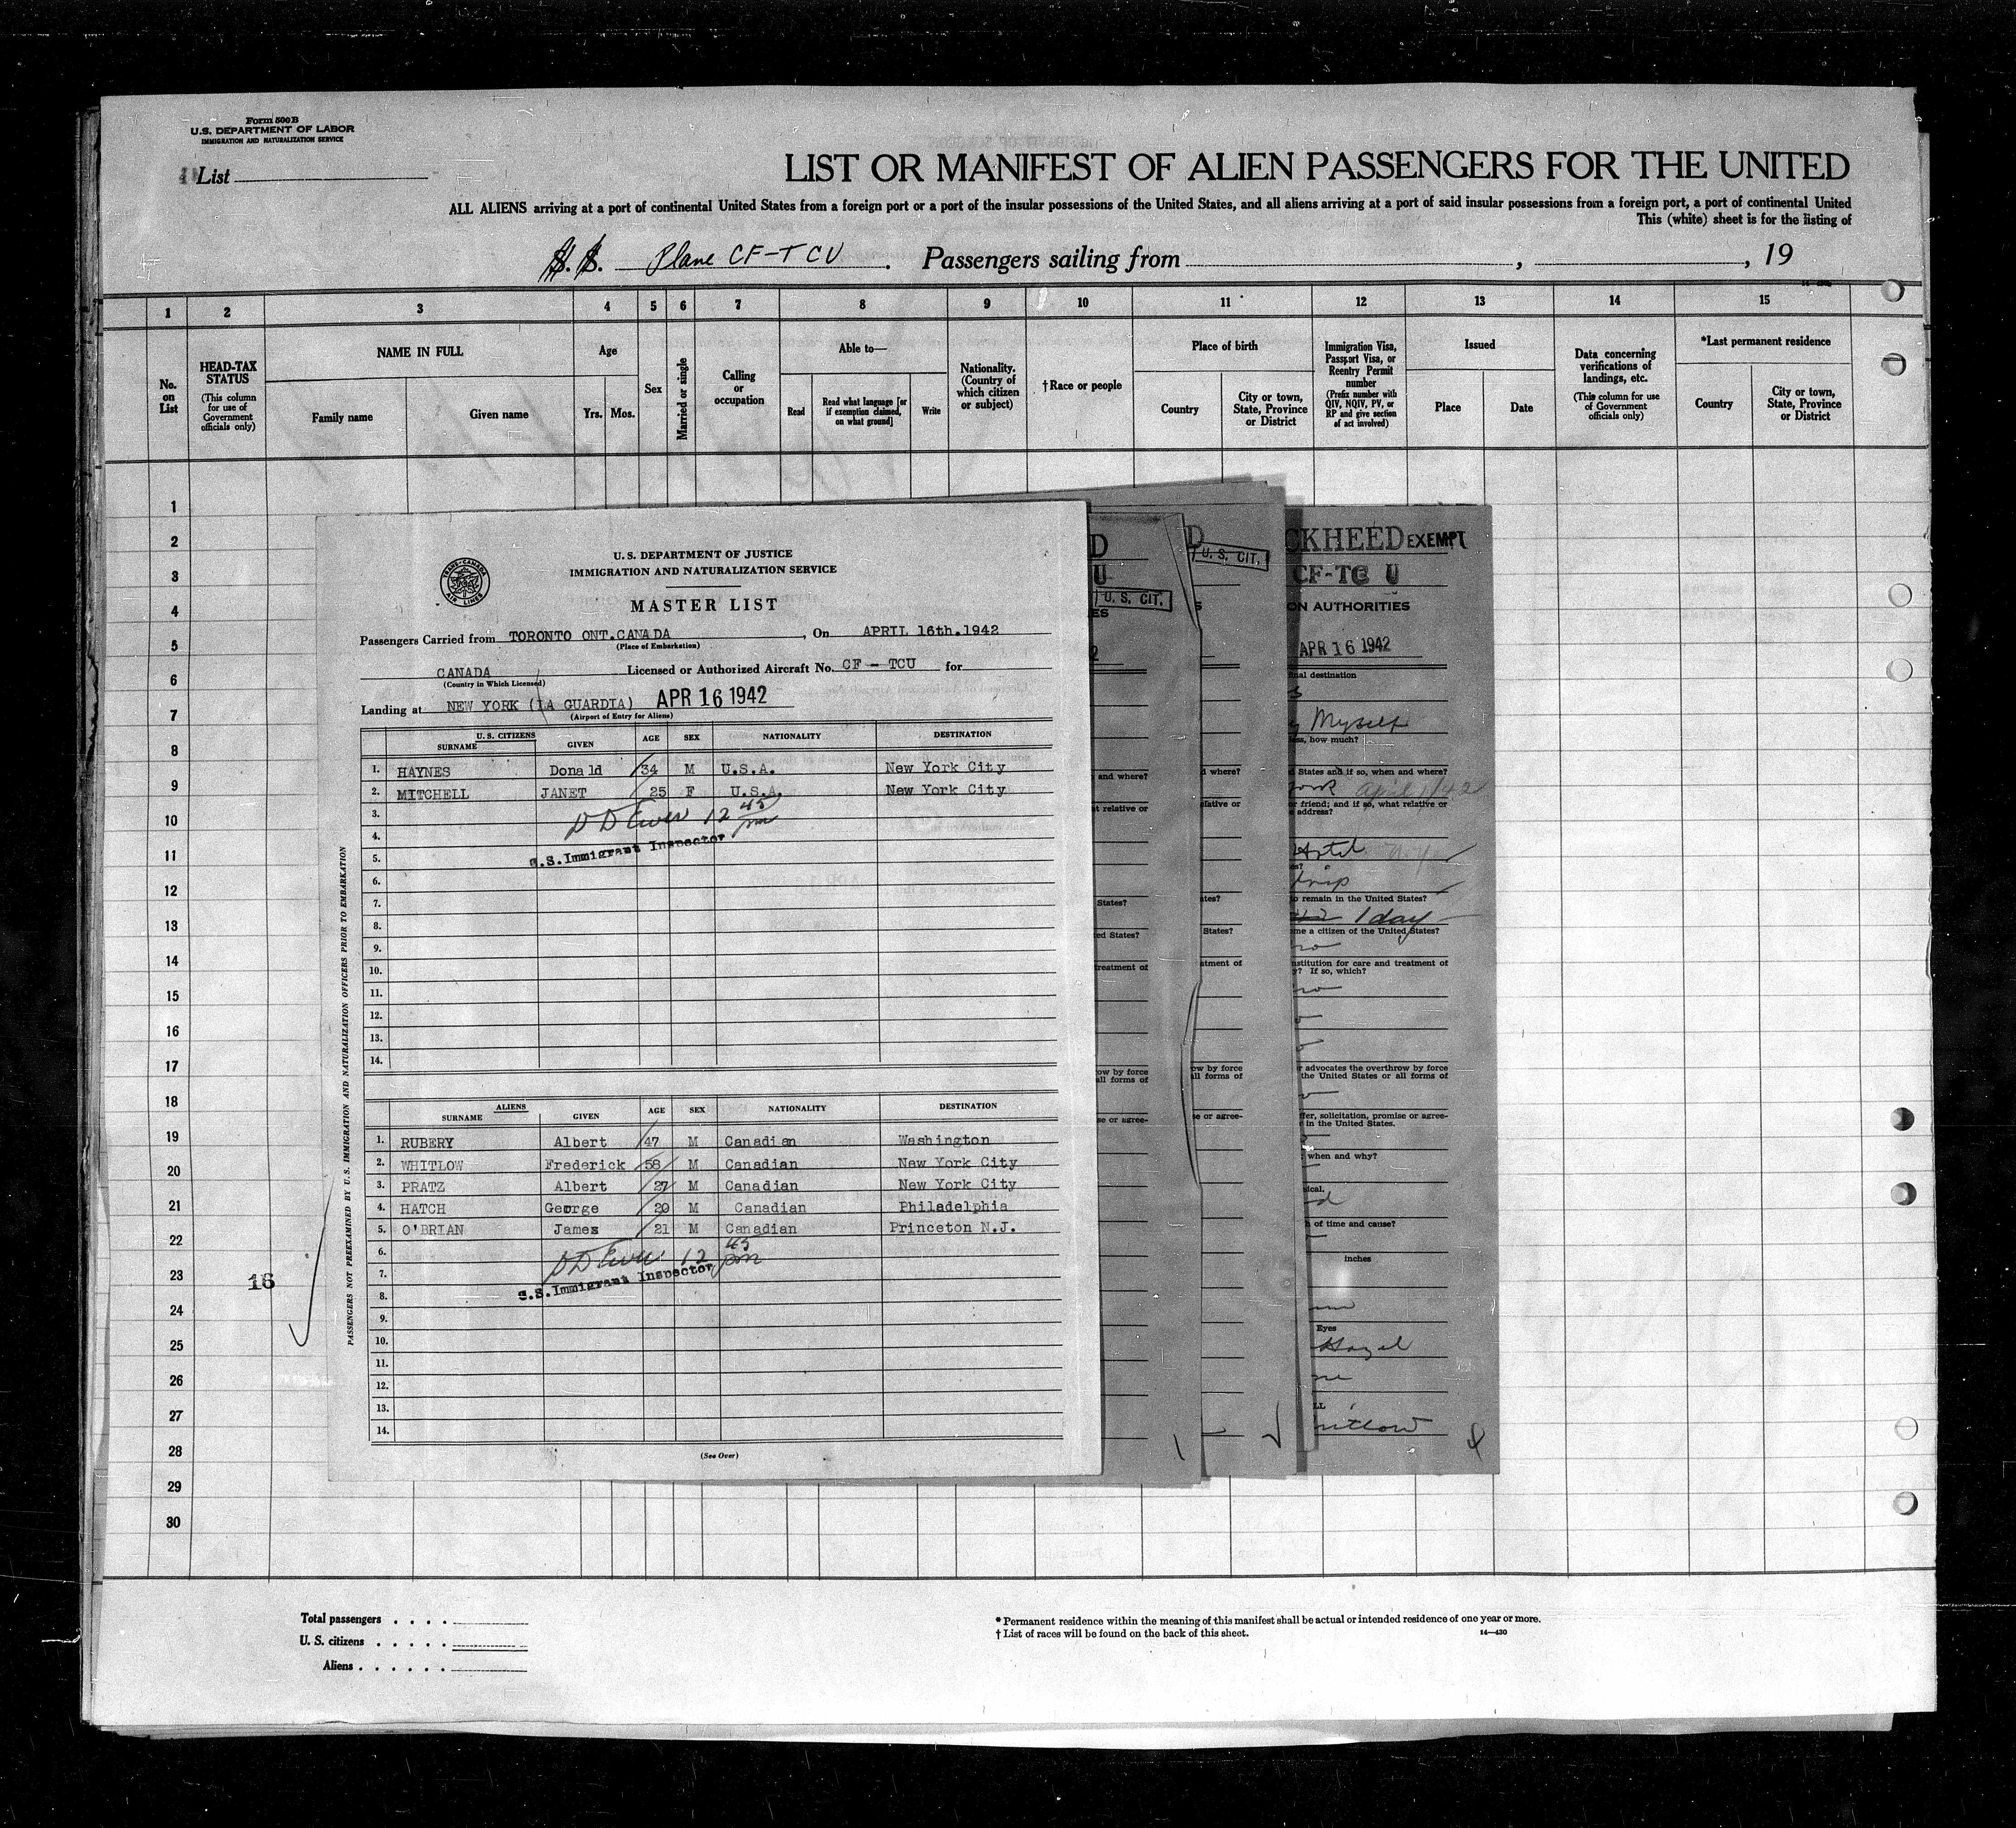 Form 500B
U.S. DEPARTMENT OF LABOR
IMMIGRATION AND NATURALIZATION SERVICE
List
LIST OR MANIFEST OF ALIEN PASSENGERS FOR THE UNITED
ALL ALIENS arriving at a port of continental United States from a foreign port or a port of the insular possessions of the United States, and all aliens arriving at a port of said insular possessions from a foreign port, a port of continental United
This (white) sheet is for the listing of
S. S. Plane CF-TCU. Passengers sailing from , , 19
1 2 3 4 5 6 7 8 9 10 11 12 13 14 15
No. on List
HEAD-TAX STATUS (This column for use of Government officials only)
NAME IN FULL
Family name Given name
Age
Yrs. Mos.
Sex
Married or single
Calling or occupation
Able to—
Read
Read what language [or if exemption claimed, on what ground]
Write
Nationality. (Country of which citizen or subject)
† Race or people
Place of birth
Country
City or town, State, Province or District
Immigration Visa, Passport Visa, or Reentry Permit number (Prefix number with QIV, NQIV, PV, or RP and give section of act involved)
Issued
Place Date
Data concerning verifications of landings, etc. (This column for use of Government officials only)
*Last permanent residence
Country
City or town, State, Province or District
1
2
3
4
5
6
7
8
9
10
11
12
13
14
15
16
17
18
19
20
21
22
23
24
25
26
27
28
29
30
16
TRANS-CANADA AIR LINES
U. S. DEPARTMENT OF JUSTICE
IMMIGRATION AND NATURALIZATION SERVICE
MASTER LIST
Passengers Carried from TORONTO ONT.CANADA, On APRIL 16th.1942
(Place of Embarkation)
CANADA Licensed or Authorized Aircraft No. CF - TCU for
(Country in Which Licensed)
Landing at NEW YORK (LA GUARDIA) APR 16 1942
(Airport of Entry for Aliens)
U. S. CITIZENS
SURNAME GIVEN AGE SEX NATIONALITY DESTINATION
1. HAYNES Donald 34 M U.S.A. New York City
2. MITCHELL JANET 25 F U.S.A. New York City
3. 12 45 pm
4.
5. U.S. Immigrant Inspector
6.
7.
8.
9.
10.
11.
12.
13.
14.
ALIENS
SURNAME GIVEN AGE SEX NATIONALITY DESTINATION
1. RUBERY Albert 47 M Canadian Washington
2. WHITLOW Frederick 58 M Canadian New York City
3. PRATZ Albert 27 M Canadian New York City
4. HATCH George 20 M Canadian Philadelphia
5. O'BRIAN James 21 M Canadian Princeton N.J.
6. 12 45 pm
7. U.S. Immigrant Inspector
8.
9.
10.
11.
12.
13.
14.
(See Over)
PASSENGERS NOT PREEXAMINED BY U.S. IMMIGRATION AND NATURALIZATION OFFICERS PRIOR TO EMBARKATION
D
U
U. S. CIT.
ES
2
and where?
t relative or
States?
ed States?
treatment of
ow by force
all forms of
se or agree-
D
U. S. CIT.
S
d where?
elative or
tes?
States?
atment of
ow by force
all forms of
se or agree-
CKHEED EXEMPT
CF-TC U
ON AUTHORITIES
APR 16 1942
nal destination
y Myself
ss, how much?
d States and if so, when and where?
York April 1/42
or friend; and if so, what relative or
e address?
Hotel N.Y.
es?
trip
to remain in the United States?
1 day
ome a citizen of the United States?
no
nstitution for care and treatment of
y? If so, which?
no
r advocates the overthrow by force
the United States or all forms of
ffer, solicitation, promise or agree-
r in the United States.
when and why?
sical.
d
h of time and cause?
inches
Eyes
Hazel
LL
hitlow
Total passengers . . . .
U. S. citizens . . . . .
Aliens . . . . . .
* Permanent residence within the meaning of this manifest shall be actual or intended residence of one year or more.
† List of races will be found on the back of this sheet.
14—430